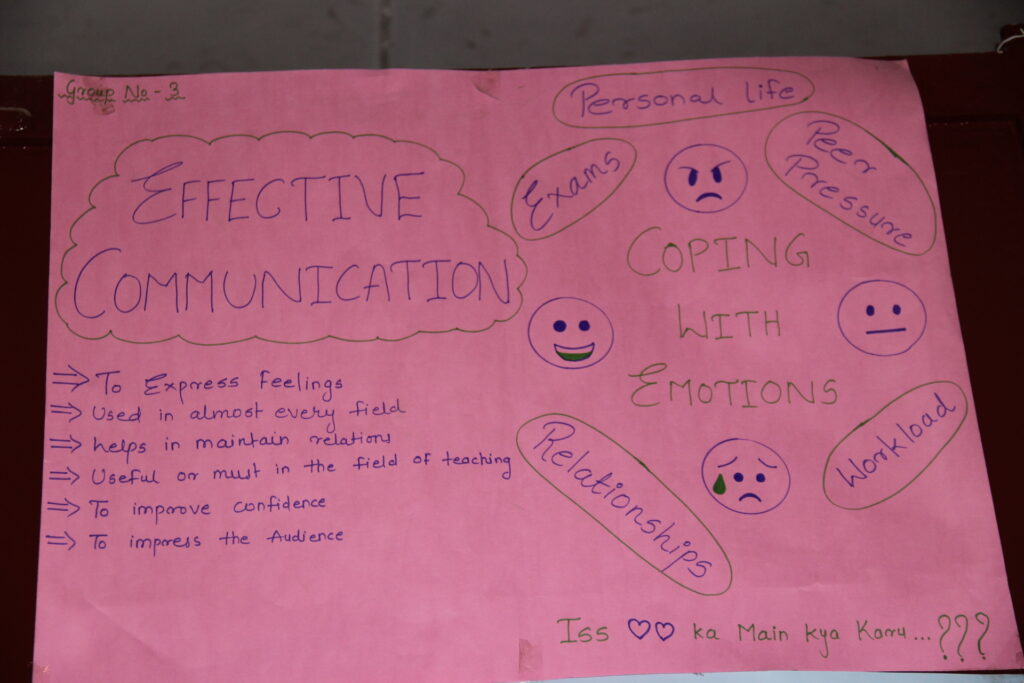 Group No - 3
EFFECTIVE
COMMUNICATION
⇒ To Express Feelings
⇒ Used in almost every field
⇒ helps in maintain relations
⇒ Useful or must in the field of teaching
⇒ To improve confidence
⇒ To impress the Audience
Personal life
Exams
Peer
Pressure
COPING
WITH
EMOTIONS
Relationships
Workload
Iss ♡♡ ka Main kya Karu...???